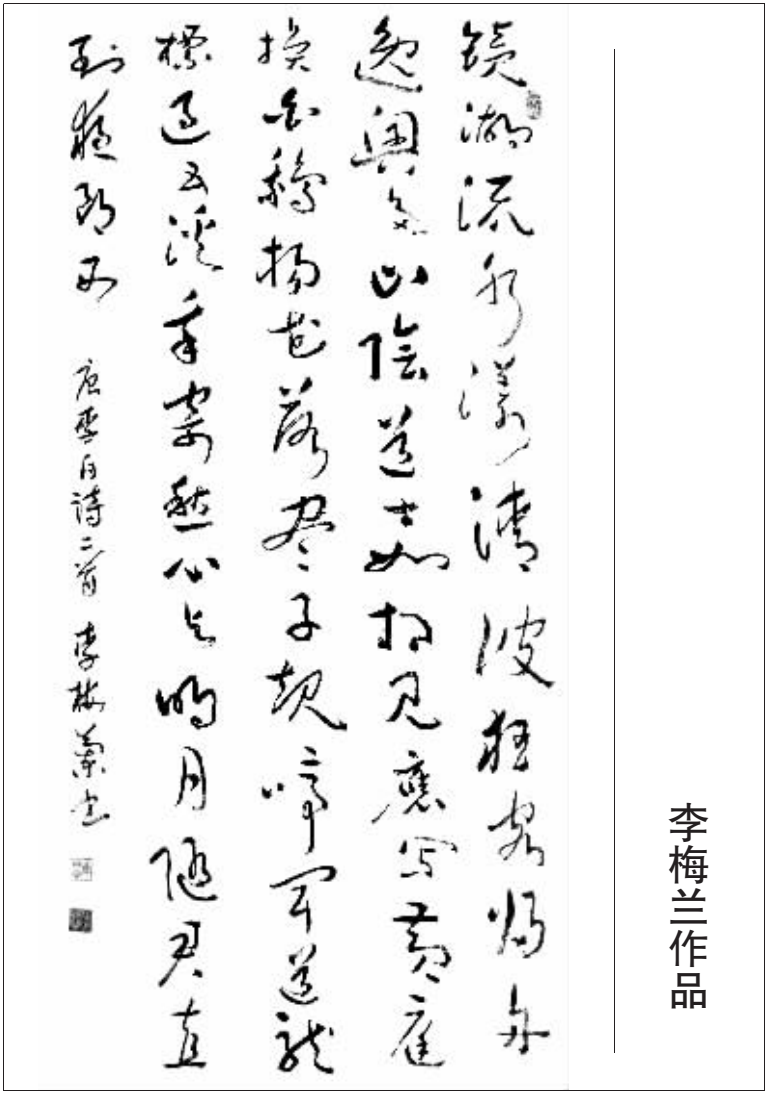 镜湖流水漾清波狂客归舟
逸興多山陰道士如相见應写黄庭
换白鹅杨花落尽子规啼闻道龙
標过五溪我寄愁心与明月随君直
到夜郎西 唐李白诗二首 李梅兰书
李梅兰作品